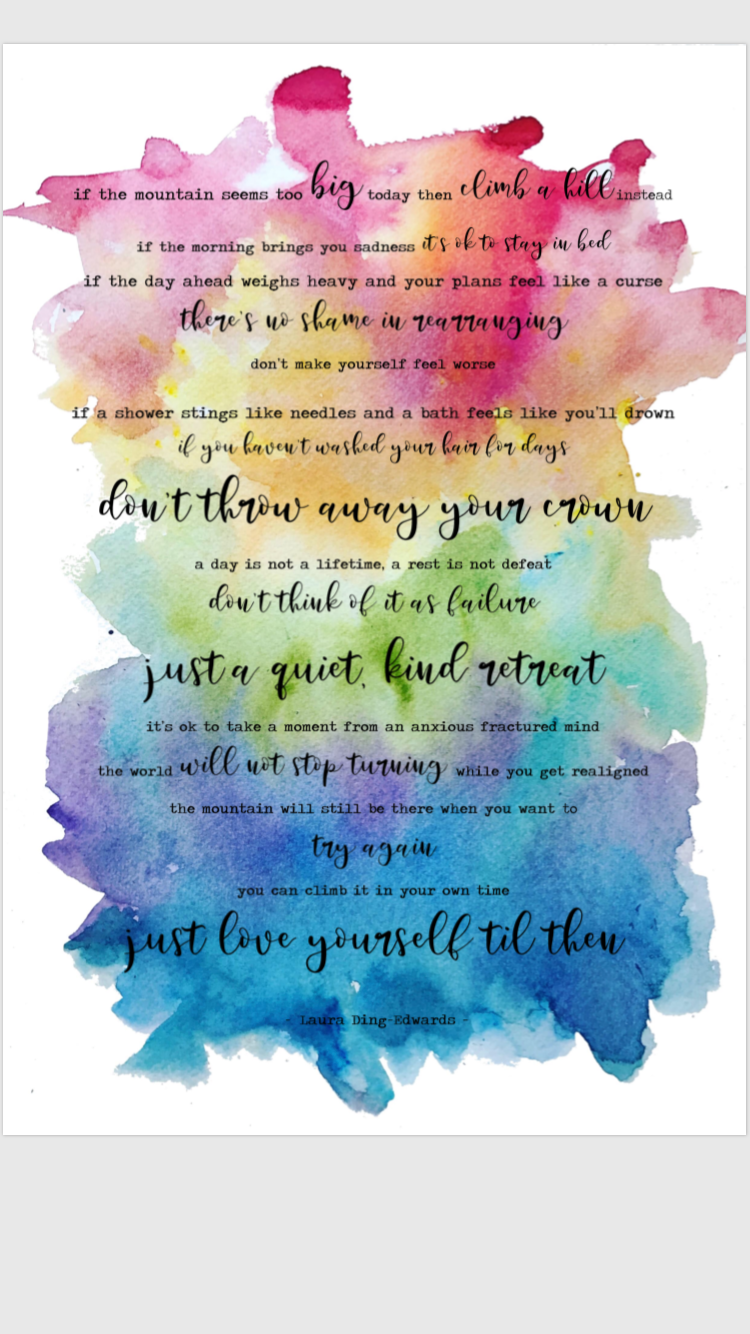 if the mountain seems too big today then climb a hill instead
if the morning brings you sadness it's ok to stay in bed
if the day ahead weighs heavy and your plans feel like a curse
there's no shame in rearranging
don't make yourself feel worse
if a shower stings like needles and a bath feels like you'll drown
if you haven't washed your hair for days
don't throw away your crown
a day is not a lifetime, a rest is not defeat
don't think of it as failure
just a quiet, kind retreat
it's ok to take a moment from an anxious fractured mind
the world will not stop turning while you get realigned
the mountain will still be there when you want to
try again
you can climb it in your own time
just love yourself til then
- Laura Ding-Edwards -